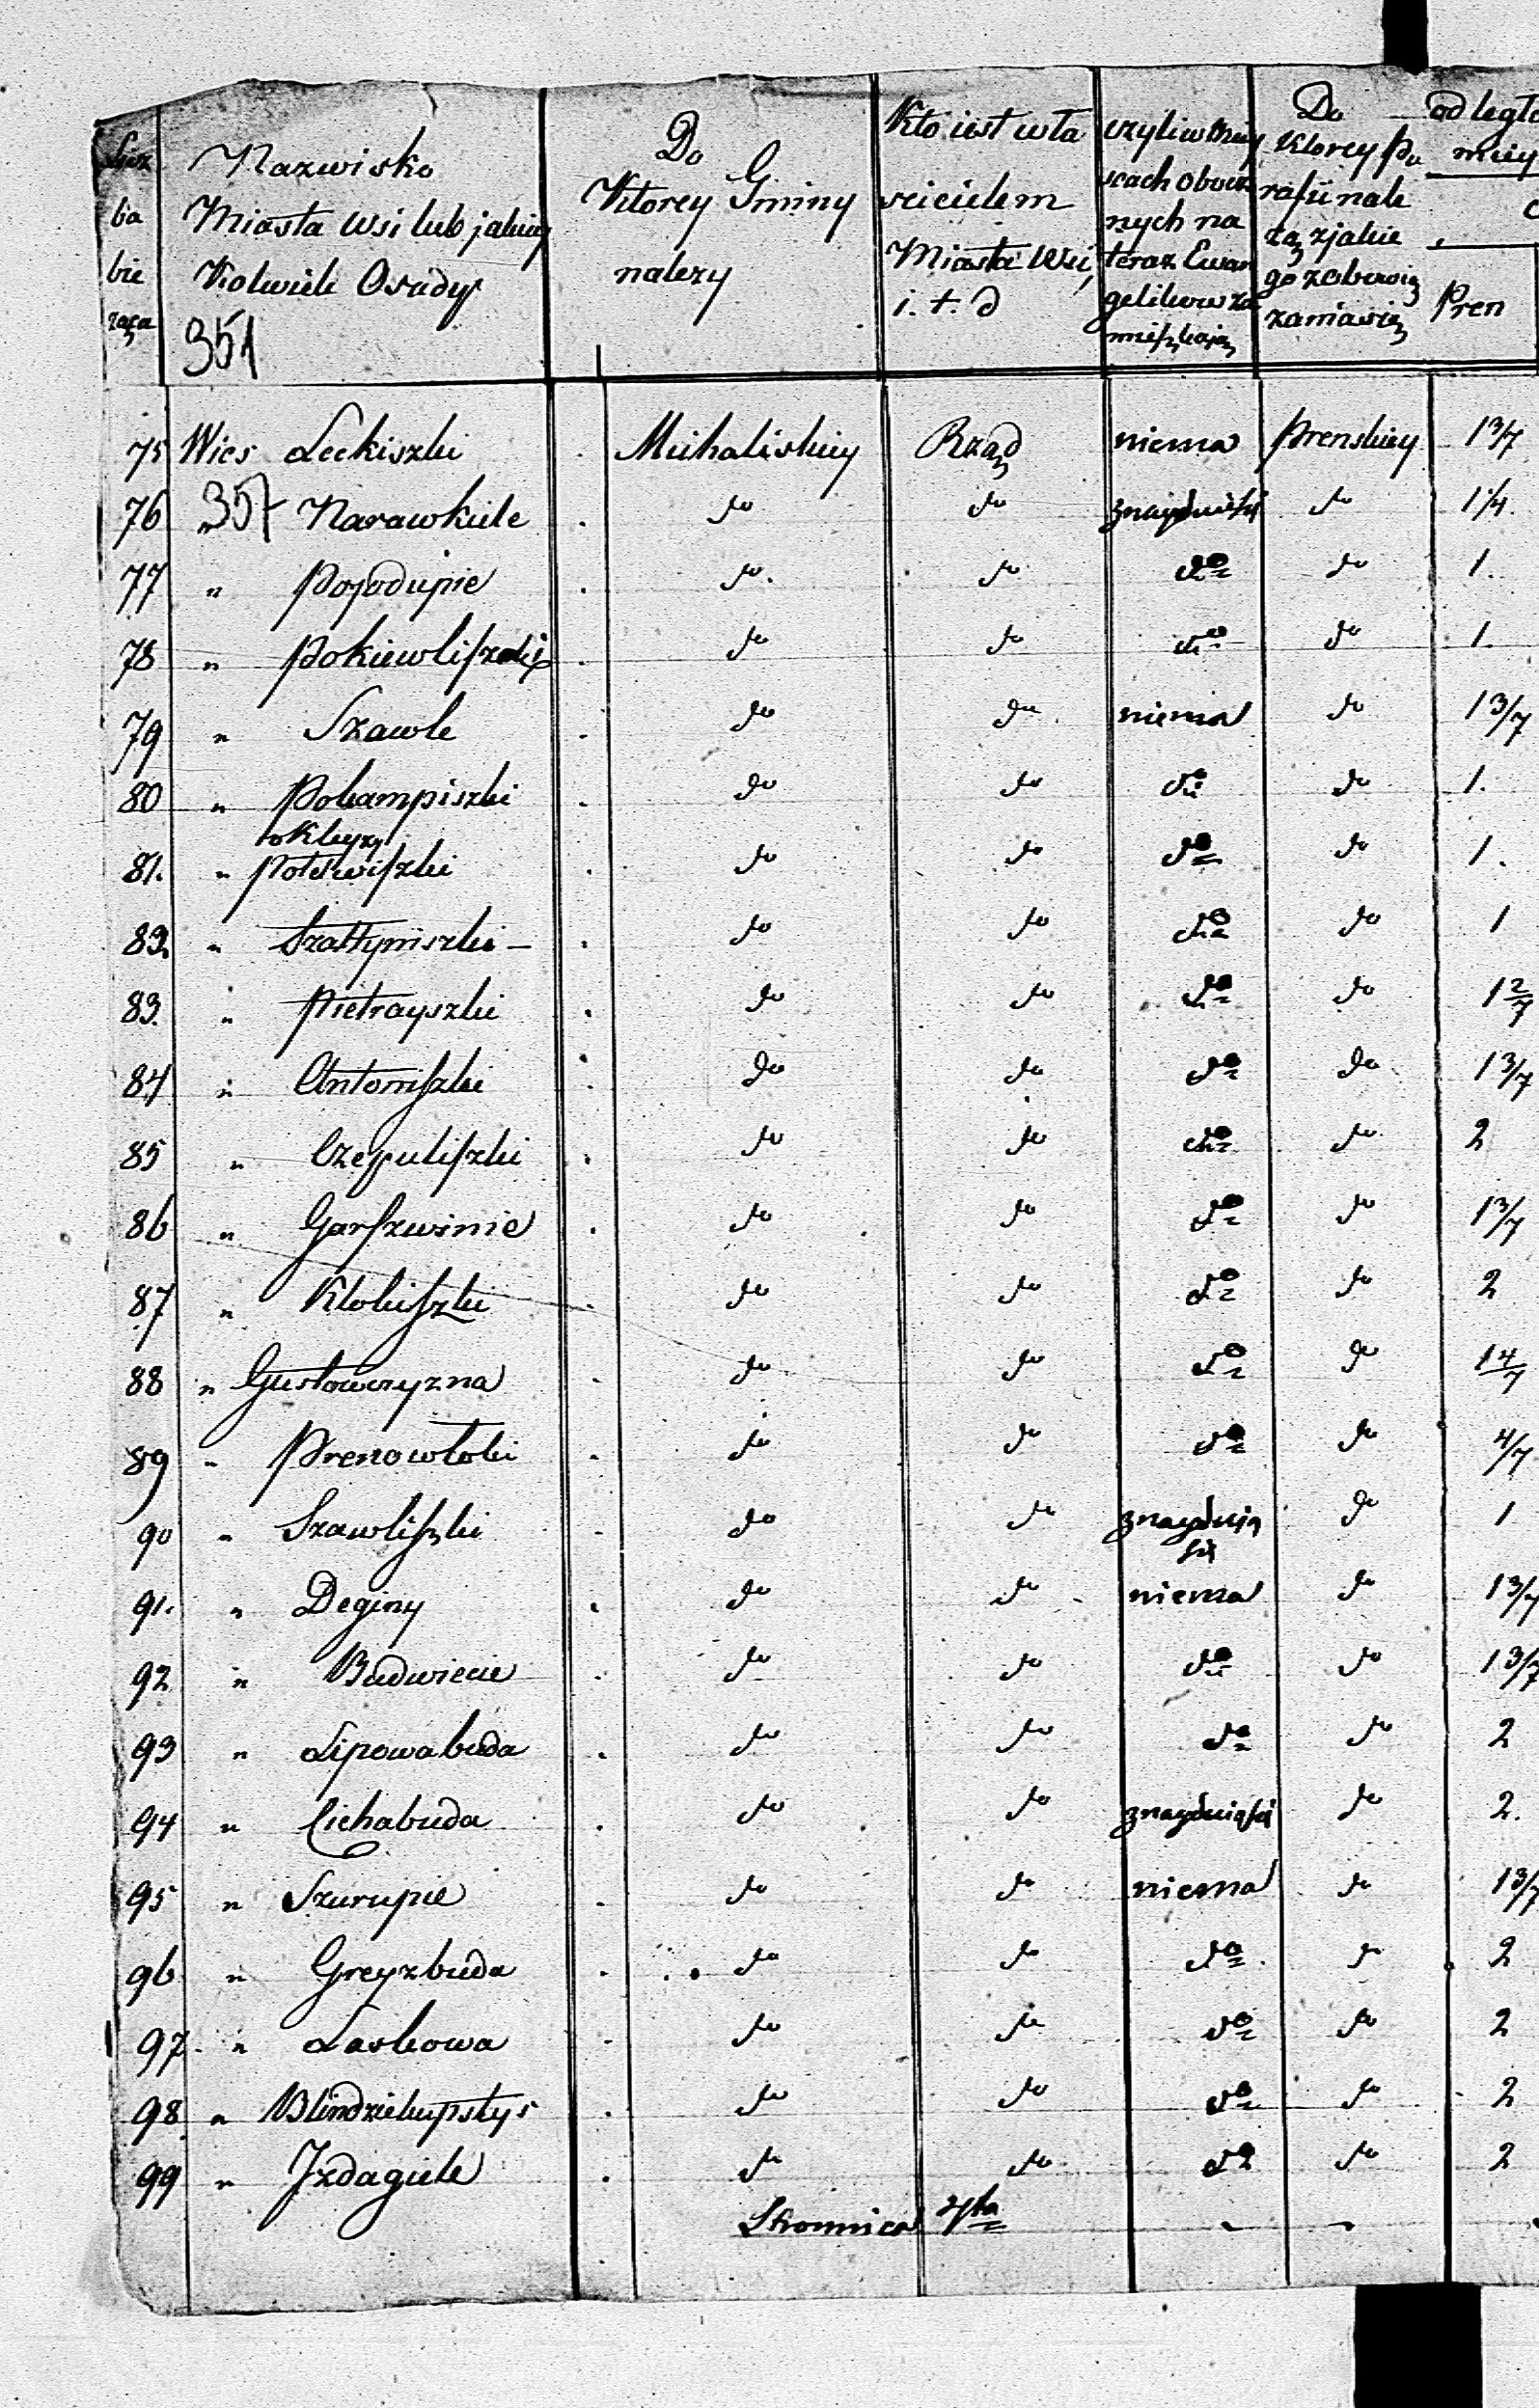 Licz
ba
bie
żąca
Nazwisko
Miasta Wsi lub jakiey
Kolwiek Osady
351
Do
Ktorey Gminy
należy
Kto iest wła
scicielem
Miasta Wsi,
i. t. d
czyli w Miey
scach obocz
nych na
teraz Ewan
gelikow za
mieszkają
Do
Ktorey Pa
rafii nale
żą z jakie
go zobowią
zania się
odległo
miey
Pren
75 Wies Leckiszki . Michaliskiey Rząd niema Prenskiey 1 3/7
76 „ 357 Narawkiele . do do znayduią się do 1/4.
77 „ Pojodupie . do. do do do 1.
78 „ Pokiewliszki . do do do do 1.
79 „ Szawle . do do niema do 1 3/7
80 „ Pokampiszki . do do do do 1.
81. „ Potekwiszki . do do do do 1.
82. „ Szałtyniszki – . do do do do 1
83. „ Pietrayszki . do do do do 1 2/7
84 „ Antoniszki . do do do do 1 3/7
85 „ Czepuliszki . do do do do 2
86 „ Garszwinie . do do do do 1 3/7
87 „ Klokiszki . do do do do 2
88 „ Gustowczyzna . do do do do 1 4/7
89 „ Prenowłoki . do do do do 4/7
90 „ Szawliszki . do do znayduią się do 1
91. „ Deginy . do do niema do 1 3/7
92 „ Budwiecie . do do do do 1 3/7
93 „ Lipowabuda . do do do do 2
94 „ Cichabuda . do do znayduią się do 2.
95 „ Szurupie . do do niema do 1 3/7
96 „ Greyzbuda . do do do do 2
97 „ Laskowa . do do do do 2
98 „ Blindziekupstys . do do do do 2
99 „ Jzdagiele . do do do do 2
Stronnica 4ta